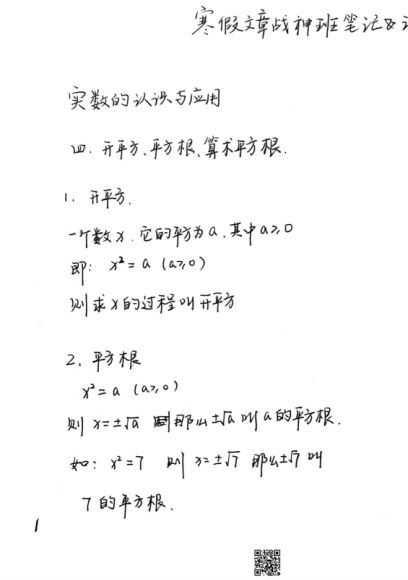 寒假文章战神班笔记&
实数的认识与应用
四. 开平方、平方根、算术平方根.
1. 开平方.
一个数x. 它的平方为a, 其中a≥0
即: x²=a (a≥0)
则求x的过程叫开平方
2. 平方根
x²=a (a≥0)
则 x=±√a 那么±√a 叫a的平方根.
如: x²=7 则 x=±√7 那么±√7 叫
7的平方根.
1